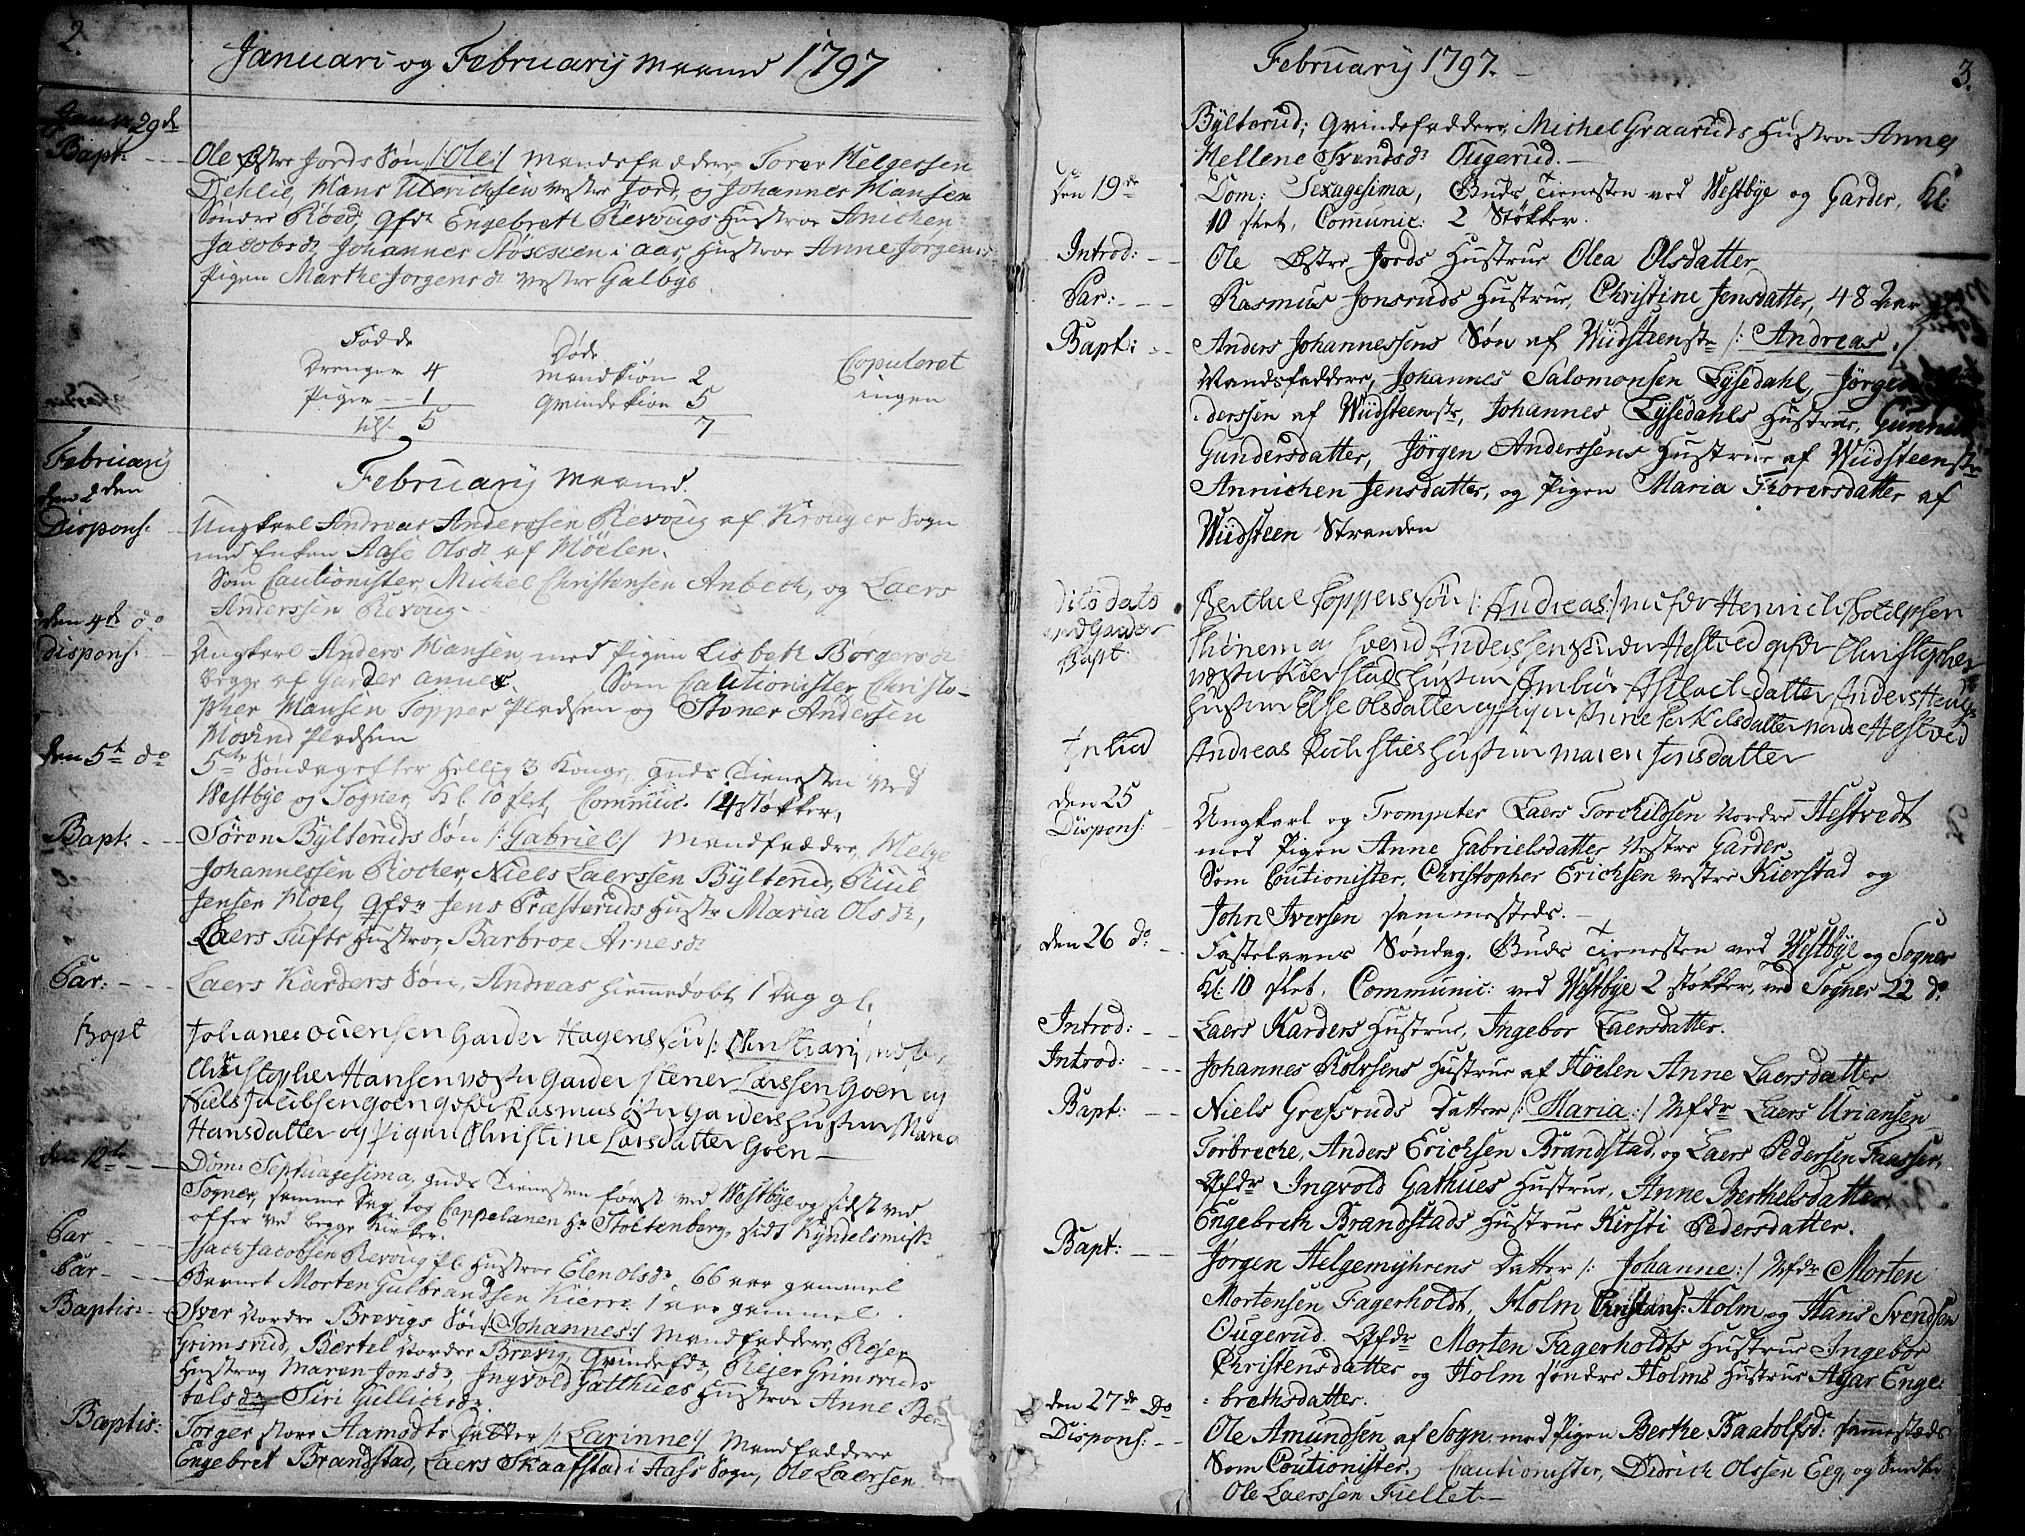 2.
Januari og Februarij Maaned 1797
Janu: 29de
Bapt:
Ole Østre Jords Søn /:Ole:/ Mandsfaddere Torer Helgessen
Dehlie, Hans Ulrichsen Vestre Jord, og Johannes Hansen
Søndre Røed; Qfdr Engebreth Revougs Hustroe Anichen
Jacobsdr Johannes Støxsen i Aas, Hustroe Anne Jørgensdr
Pigen Marthe Jørgensdr Vestre Galbye.
Fødde
Drenger 4
Piger 1
5
Døde
Mandkiøn 2
Qvindekiøn 5
7
Copuleret
ingen
Februarij
den 2den
Februarij Maaned.
Dispons:
Ungkarl Andreas Anderssen Revoug af Kroager Sogn
med Enken Aase Olsdr af Høelen.
Som Cautionister, Michel Christensen Anbech, og Laers
Anderssen Revoug.
den 4de do
dispons:
Ungkarl Anders Hansen, med Pigen Lisbeth Børgersdr
begge af Garder annex. Som Cautionister Christo-
pher Hansen Topper Pladsen og Stener Andersen
Hovind Pladsen
den 5te do
5te Søndag efter Hellig 3 Konge, Guds Tienesten ved
Westbye og Sogner, Kl. 10 slet, Commun. 14 støkker,
Bapt:
Søren Bylteruds Søn /:Gabriel:/ Mandfaddre, Helge
Johannessen Rocher, Niels Laerssen Bylterud, Riul
Jensen Hoel, Qfdr Jens Præsteruds Hustr Maria Olsdr,
Laers Tufts Hustroe, Barbroe Arnesdr
Sar:
Laers Karders Søn, Andreas hiemmedøbt 1 Dag gl.
Bapt
Johanes ouensen Garder Hagens Søn /: Christian
Christopher Hansen væstre Garder stener Larssen Goen og
Niels Jacobsen Goen Qfdr Rasmus østre Garders Hustrue Maria
Hansdatter og Pigen Christine Larsdatter Goen
den 12te
Dom: Septuagesima, Guds Tienesten først ved Westbye og sidst ved
Sogner, samme Dag tog Cappelanen Hr Stoltenberg, sidst Kyndelsmiss
offer ved begge Kirker.
Sar
Isach Jacobsen Revoug Pl. Hustroe Elen Olsdr, 66 aar gammel
Sar
Barnet Morten Gulbrandssen Kierre 1 aar gammel.
Baptis:
Iver Nordre Brevigs Søn /:Johannes:/ Mandfaddere, Rejer
Grimsrud, Bertel Nordre Brevig, Qvindefdr, Rejer Grimsruds
Hustroe Maren Jonsdr, Ingvold Gatthues Hustroe Anne Ber-
telsdr Siri Gullichsdr.
Baptis:
Torger store Hamodts Datter /:Larinne:/ Mandfaddere
Engebret Brandstad, Laers Skaafstad i Aass Sogn, Ole Laersen
3.
Februarij 1797.
Bylterud; Qvindefaddere, Michel Graaruds Hustroe Anne,
Hellene Svendsdr Ougerud.
den 19de
Dom: Sexagesima, Guds Tienesten ved Westbye og Garder, Kl:
10 slet, Comunic: 2 Støkker.
Introd:
Ole Østre Jords Hustrue Olea Olsdatter
Sar:
Rasmus Jonsruds Hustrue, Christine Jensdatter, 48 Aar
Bapt:
Anders Johannessens Søn af Wiidsteenstr /: Andreas :/
Mandsfaddere, Johannes Salomonsen Lysedahl, Jørgen
derssen af Wiidsteenstr, Johannes Lysedahls Hustrue, Gunnild
Gundersdatter, Jørgen Anderssens Hustrue af Wiidsteenstr
Annichen Jensdatter, og Pigen Maria Thorersdatter af
Wiidsteen Stranden
dito dato
ved Garder
Bapt:
Berthel Toppers Søn /: Andreas:/ mfdr Henrich Rolepsen
Thønema svend Anderssen Hestved qfdr Christopher
væstre Kierstads Hustrue Imbiør Aslachdatter Anders
Hustrue Else Olsdatter og Pigen Anne Torkelsdatter nordre Hestved
Intrd
Andreas Hustrue maren Jensdatter
den 25
Dispons:
Ungkarl og Trompeter Laers Torchildsen Nordre Hestvedt
med Pigen Anne Gabrielsdatter Vestre Garder,
Som Coutionister, Christopher Erichsen vestre Kierstad og
John Iversen sammesteds.
den 26 do.
Fastelavns Søndag, Guds Tienesten ved Westbye og Sogner
Kl: 10 slet, Communic: ved Westbye 2 støkker, ved Sogner 22 do
Introd:
Laers Karders Hustrue, Ingebor Laersdatter.
Introd:
Johannes Rolvsens Hustrue af Høelen Anne Laersdatter
Bapt:
Niels Grefsruds Datter /: Maria :/ Mfdr Laers Uriansen
Torbreche, Anders Erichsen Brandstad, og Laers Pedersen Faasser,
Qfdr Ingvold Gathues Hustrue, Anne Berthelsdatter
Engebreth Brandstads Hustrue Kirsti Pedersdatter.
Bapt:
Jørgen Helgemyhrens Datter /: Johanne:/ Mfdr Morten
Mortensen Fagerholdt, Holm Christens: Holm, og Hans Svendsen
Ougerud. Qfdr Morten Fagerholdts Hustrue Ingebor
Christensdatter og Holm søndre Holms Hustrue Agar Enge:
brethsdatter.
den 27de Do
Dispons:
Ole Amundsen af Sogn. med Pigen Berthe Baatolfsd: sammesteds
Som Coutionister, Cautionister, Didrich Olssen Elg, og
Ole Laerssen Fiellet